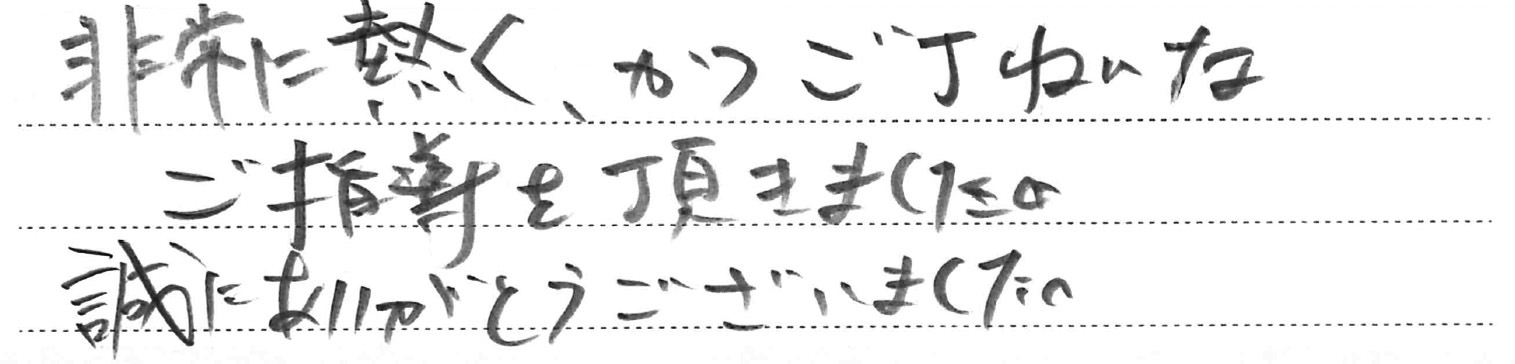 非常に熱く、かつご丁ねいな
ご指導を頂きました。
誠にありがとうございました。